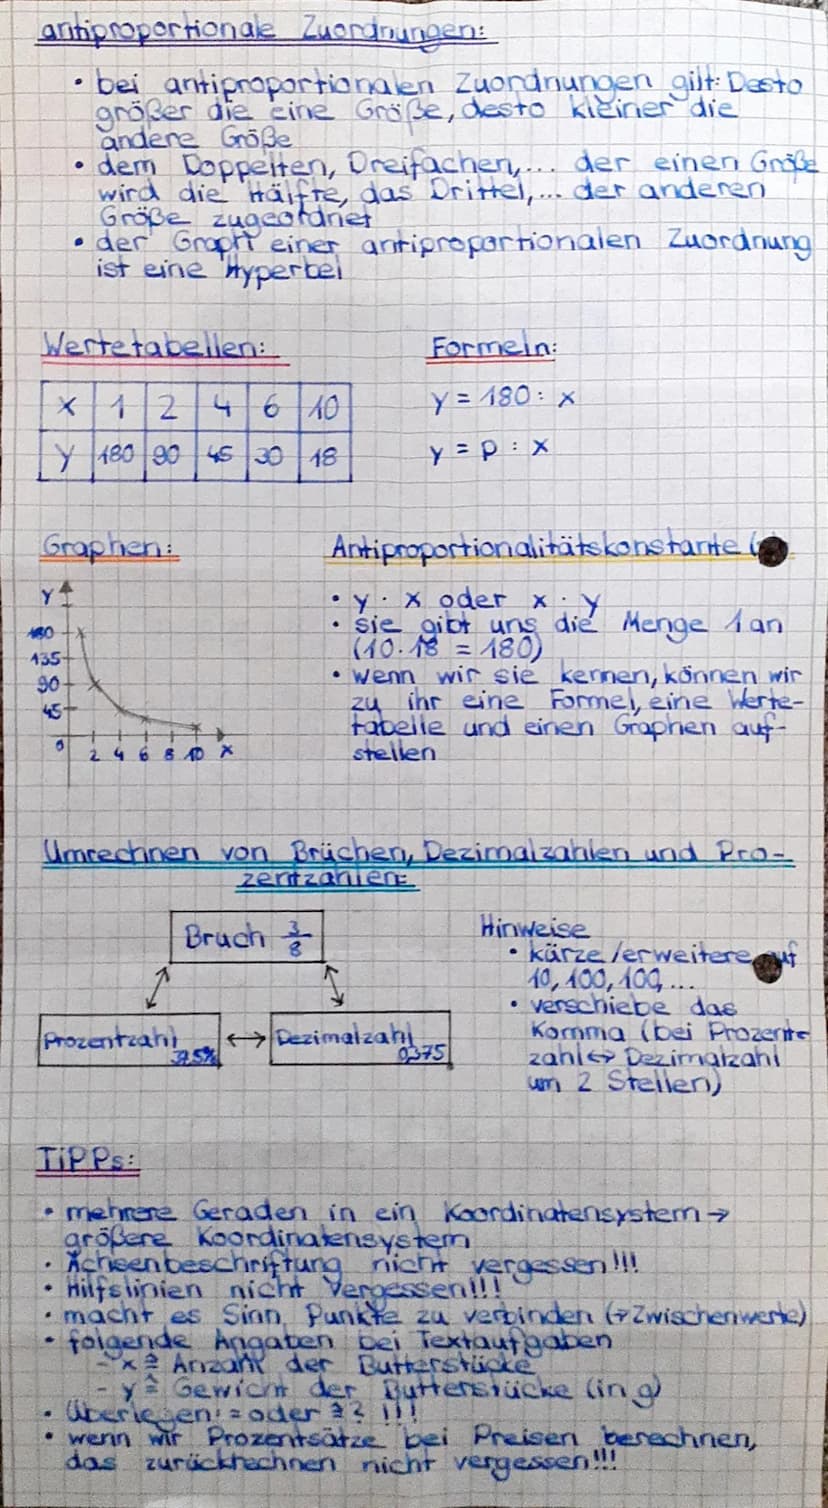 antiproportionale Zuordnungen:
• bei antiproportionalen Zuordnungen gilt: Desto
größer die eine Größe, desto kleiner die
andere Größe
• dem Doppelten, Dreifachen,... der einen Größe
wird die Hälfte, das Drittel,... der anderen
Größe zugeordnet
• der Graph einer antiproportionalen Zuordnung
ist eine Hyperbel
Wertetabellen:
x 1 2 4 6 10
y 180 90 45 30 18
Formeln:
y = 180 : x
y = p : x
Graphen:
y
180
135
90
45
0 2 4 6 8 10 x
Antiproportionalitätskonstante (
• y · x oder x · y
• sie gibt uns die Menge 1 an
(10 · 18 = 180)
• wenn wir sie kennen, können wir
zu ihr eine Formel, eine Werte-
tabelle und einen Graphen auf-
stellen
Umrechnen von Brüchen, Dezimalzahlen und Pro-
zentzahlen:
Bruch 3/8
Prozentzahl ↔ Dezimalzahl
37,5% 0,375
Hinweise
• kürze/erweitere auf
10, 100, 100,...
• verschiebe das
Komma (bei Prozent-
zahl ↔ Dezimalzahl
um 2 Stellen)
TiPPs:
• mehrere Geraden in ein Koordinatensystem →
größere Koordinatensystem
• Achsenbeschriftung nicht vergessen!!!
• Hilfslinien nicht vergessen!!!
• macht es Sinn Punkte zu verbinden (→ Zwischenwerte)
• folgende Angaben bei Textaufgaben
- x ≙ Anzahl der Butterstücke
- y ≙ Gewicht der Butterstücke (in g)
• Überlegen: = oder ≙? !!!
• wenn wir Prozentsätze bei Preisen berechnen,
das zurückrechnen nicht vergessen!!!